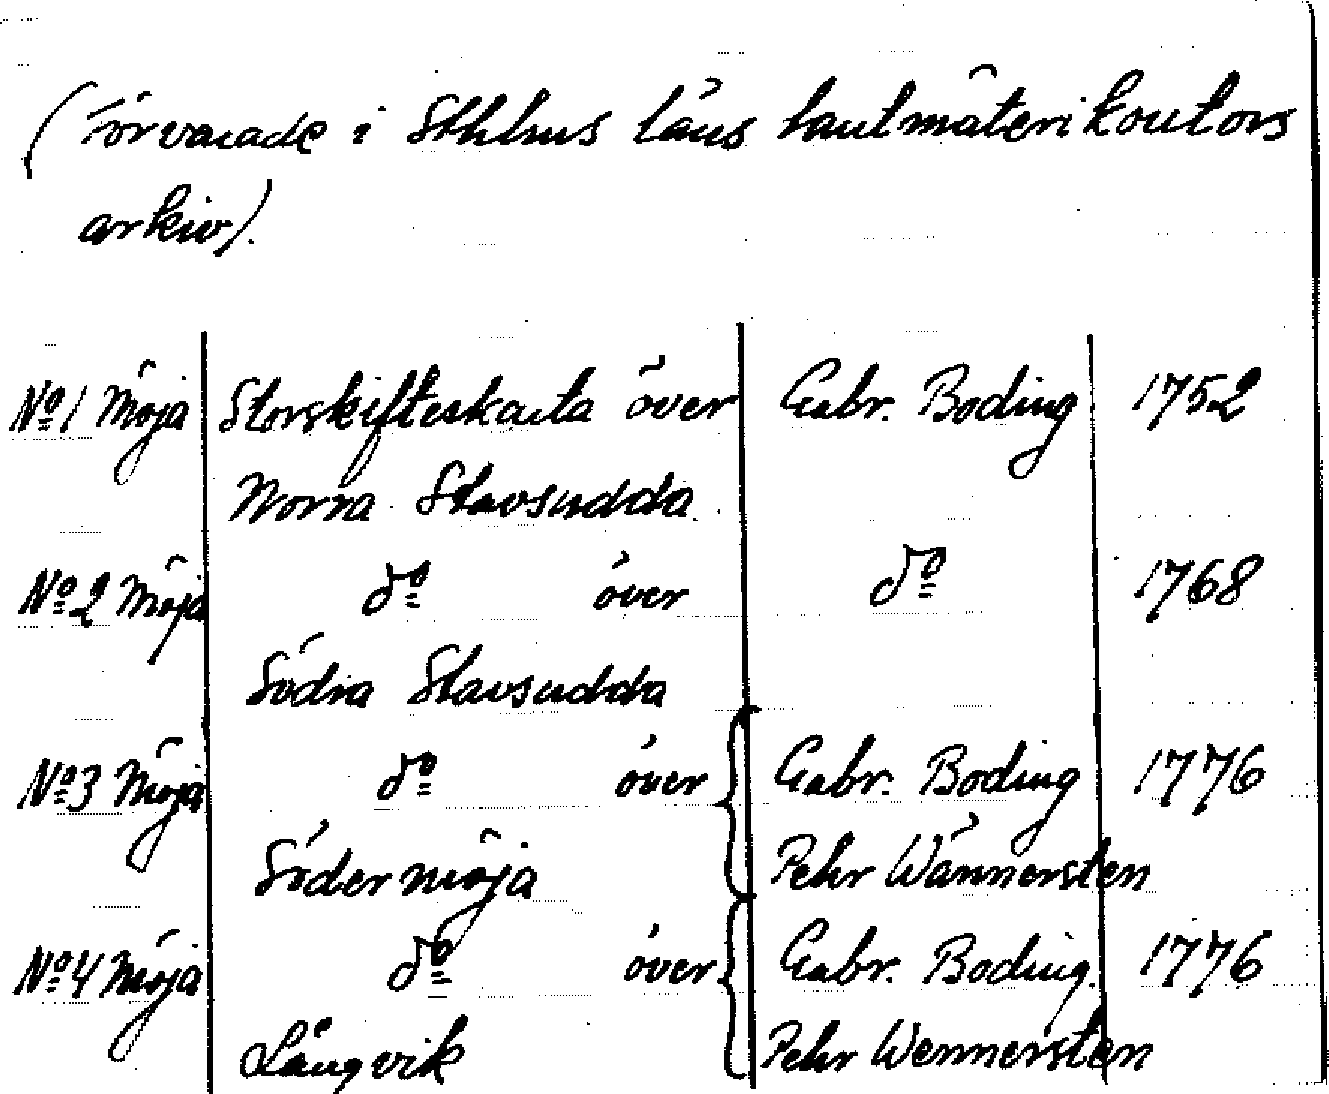 (Förvarade i Sthlms läns lantmäterikontors
arkiv).
No 1 Möja Storskifteskarta över Gabr. Boding 1752
Norra Stavsudda
No 2 Möja do över do 1768
Södra Stavsudda
No 3 Möja do över Gabr. Boding 1776
Södermöja Pehr Wännersten
No 4 Möja do över Gabr. Boding. 1776
Långvik Pehr Wennersten